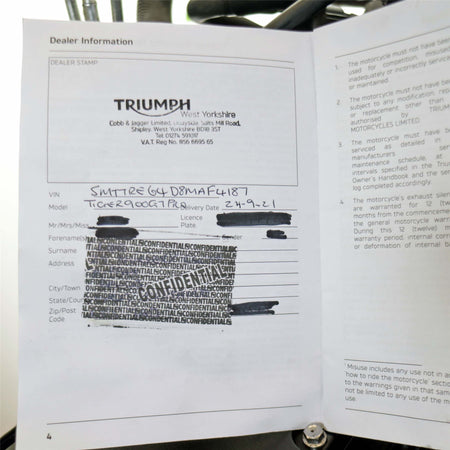 Dealer Information
DEALER STAMP
TRIUMPH
West Yorkshire
Cobb & Jagger Limited, Salts Mill Road,
Shipley, West Yorkshire BD18 3ST
Tel: 01274 591017
V.A.T. Reg No. 856 6695 65
VIN
Model TIGER900GT PRO Delivery Date 24-9-21
Mr/Mrs/Miss Licence Plate
Forename(s)
Surname
Address
CONFIDENTIAL
City/Town
State/
Zip/Post
Code
4
1. The motorcycle must not have been
used for competition, misused
inadequately or incorrectly serviced
or maintained.
2. The motorcycle must not have been
subject to any modification,
or replacement other than
authorised by TRIUMPH
MOTORCYCLES LIMITED.
3. The motorcycle must have
serviced as detailed in
manufacturer's
maintenance schedule, at
intervals specified in the
Owner's Handbook and the
log completed accordingly.
4. The motorcycle's exhaust
are warranted for 12 (twelve)
months from the commencement
the general motorcycle warranty
During this 12 (twelve)
warranty period, internal
or deformation of internal
Misuse includes any use not in
'how to ride the motorcycle' section
to the warnings given in that same
not be limited to any use of the
use.